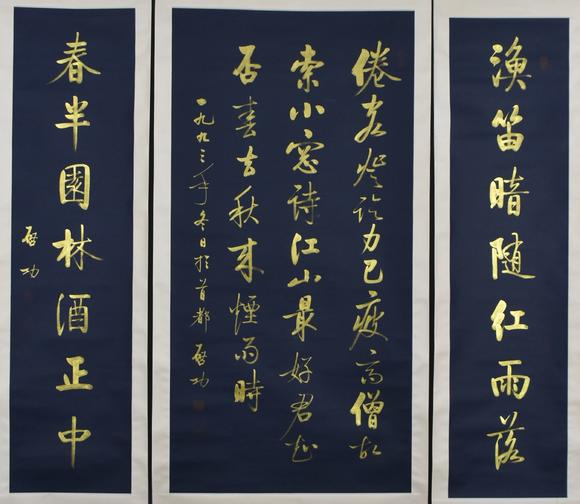 漁笛暗随红雨落
倦客登临力已疲高僧
索小窓诗江山最好君知
否春去秋来煙雨時
一九九三年冬日於首都 啓功
春半園林酒正中
啓功